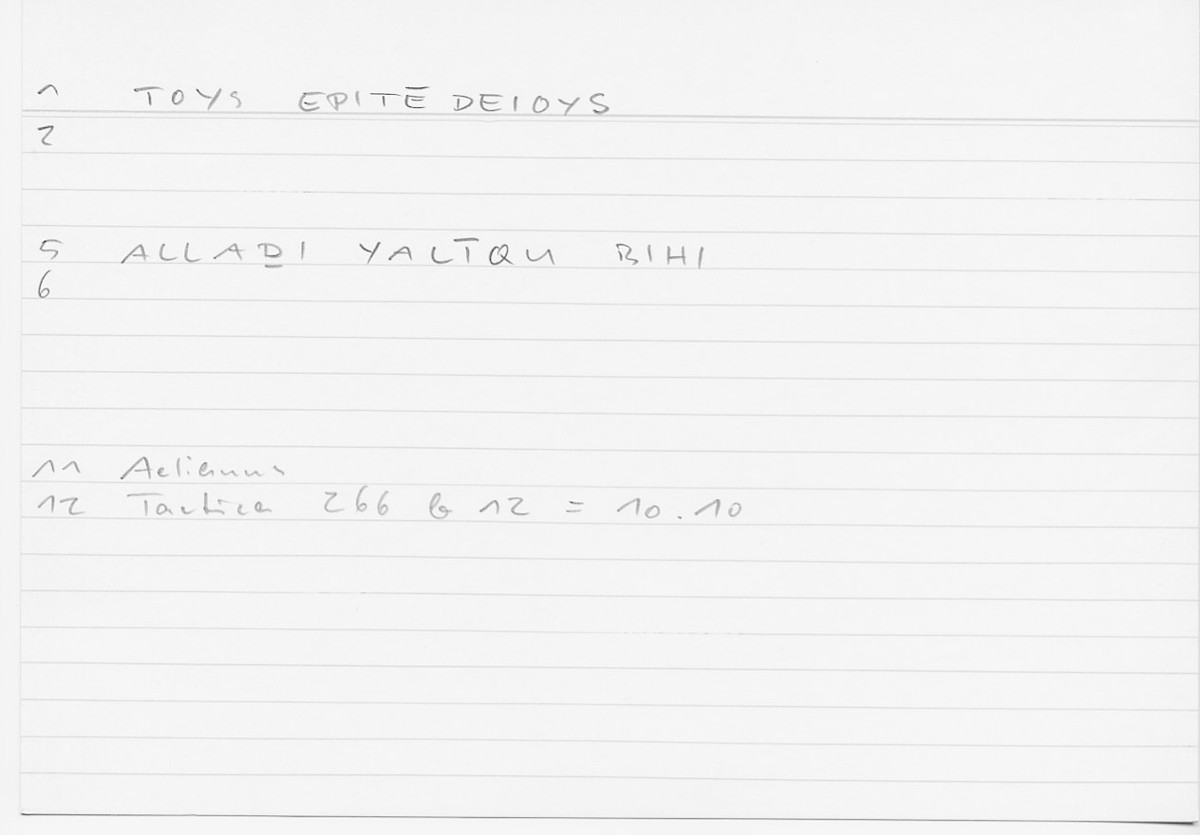 1 TOYS EPITĒDEIOYS
2
5 ALLAḎI YALTQU BIHI
6
11 Aelianus
12 Tactica 266 b 12 = 10.10